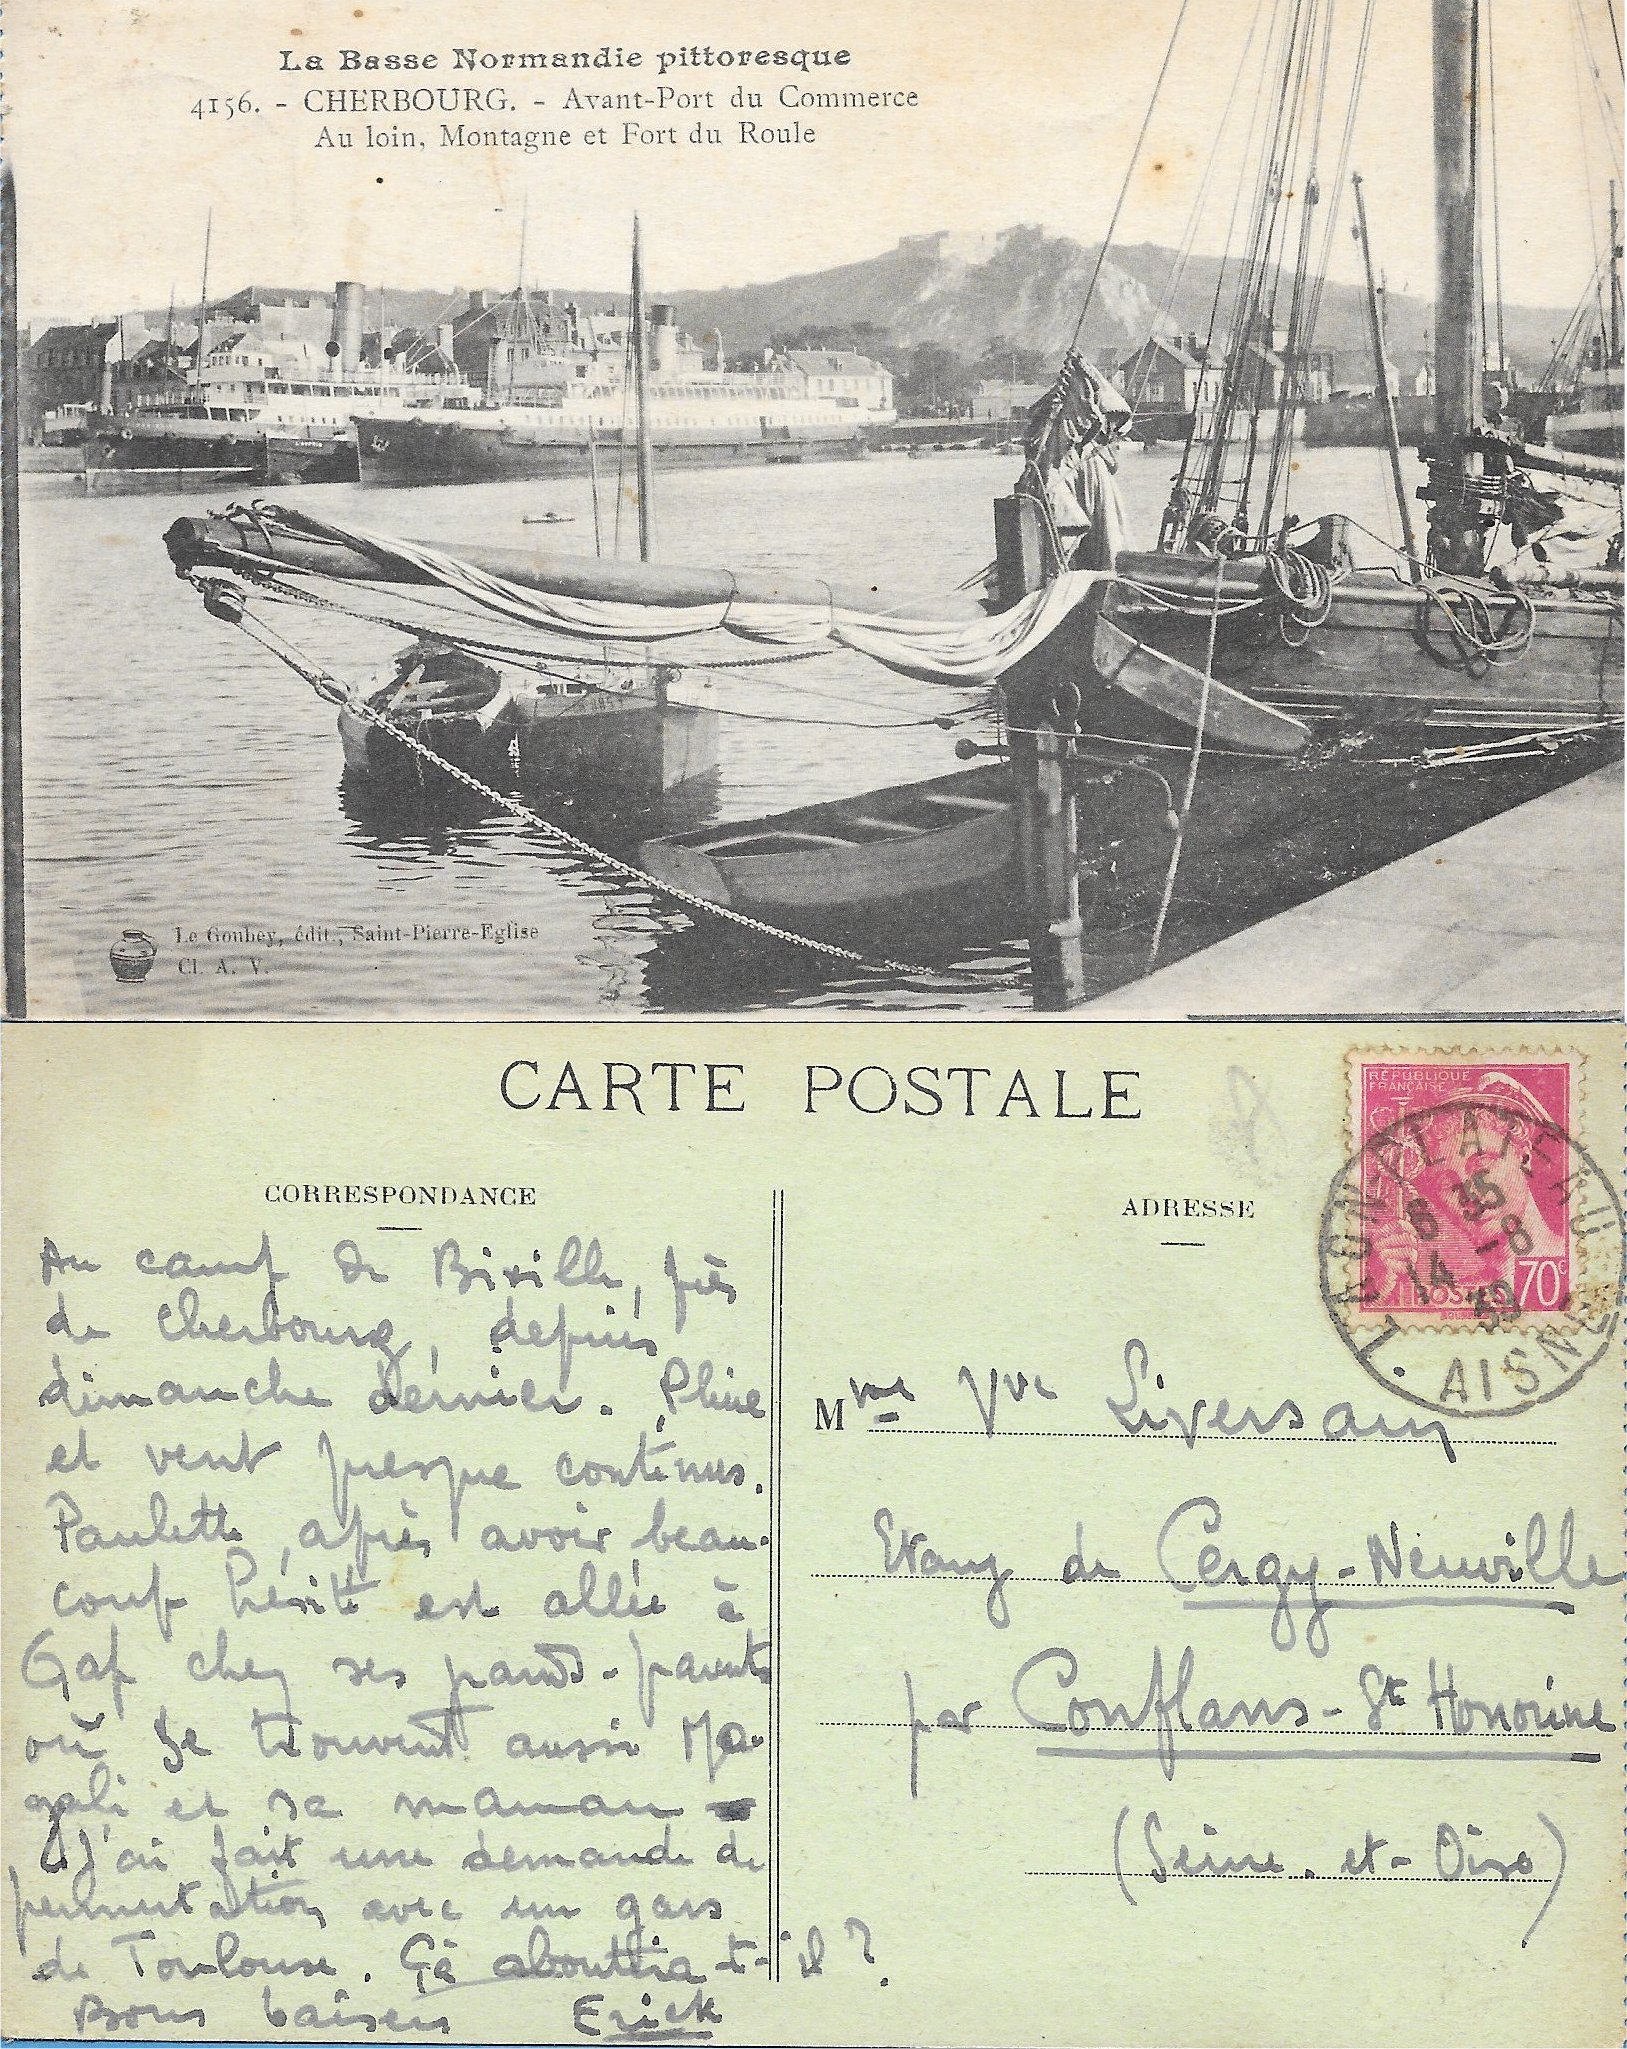 La Basse Normandie pittoresque
4156. - CHERBOURG. - Avant-Port du Commerce
Au loin, Montagne et Fort du Roule
Le Goubey, édit., Saint-Pierre-Eglise
Cl. A. V.
CARTE POSTALE
RÉPUBLIQUE
FRANÇAISE
70c
POSTES
LAON-PLATEAU
6 35
14 -8
39
AISNE
CORRESPONDANCE
Au camp de Biville, près
de Cherbourg, depuis
dimanche dernier. Pluie
et vent presque continus.
Paulette, après avoir beau-
coup hésité est allée à
Gap chez ses grands-parents
où se trouvent aussi Ma-
gali et sa maman
J'ai fait une demande de
permutation avec un gars
de Toulouse. Çà aboutira-t-il ?
Bons baisers Erick
ADRESSE
Mme Vve Liversain
Etang de Cergy-Neuville
par Conflans-St Honorine
(Seine-et-Oise)